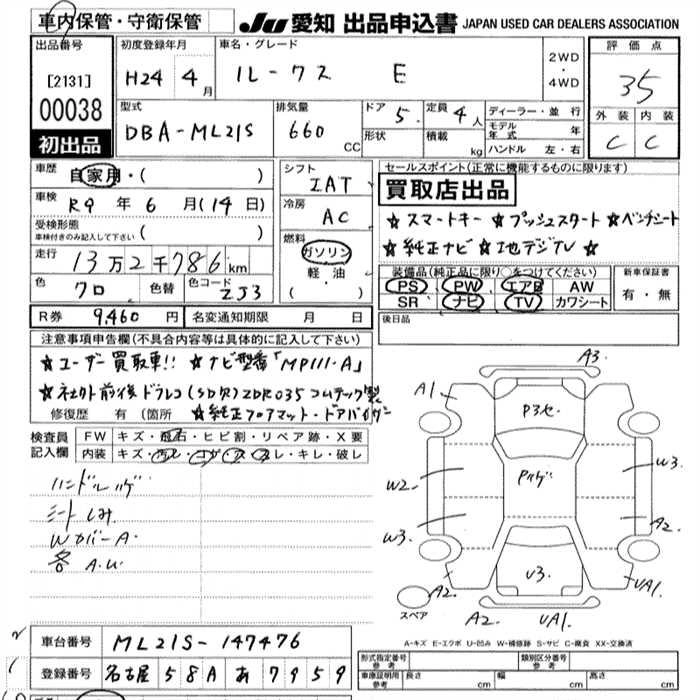 車内保管・守衛保管
JU 愛知 出品申込書 JAPAN USED CAR DEALERS ASSOCIATION
出品番号
[2131]
00038
初出品
初度登録年月
H24 年 4 月
車名・グレード
ルークス E
2WD
・
4WD
評価点
35
型式
DBA-ML21S
排気量
660 cc
ドア 5
形状
定員 4 人
積載 kg
ディーラー・並行
モデル年式 年
ハンドル 左・右
外装 内装
C C
車歴 自家用・( )
車検 R9 年 6 月(14 日)
受検形態
車検付きのみ記入して下さい ( )
走行 13万2千786 km
色 クロ 色替 色コード ZJ3
シフト IAT
冷房 AC
燃料 ガソリン
軽油
( ・ )
セールスポイント(正常に機能するものに限ります)
買取店出品
★スマートキー ★プッシュスタート ★ベンチシート
★純正ナビ ★地デジTV ★
装備品(純正品に限り○をつけてください)
PS PW エアB AW
SR ナビ TV カワシート
新車保証書
有・無
R券 9,460 円 名変通知期限 月 日
後日品
注意事項申告欄(不具合内容等は具体的に記入して下さい)
★ユーザー買取車!! ★ナビ型番「MP111-A」
★社外前後ドラレコ(SD欠)ZDR035コムテック製
修復歴 有 (箇所 ★純正フロアマット・ドアバイザー
検査員記入欄
FW キズ・飛石・ヒビ割・リペア跡・X要
内装 キズ・汚レ・コゲ・スレ・キレ・破レ
ハンドルハゲ
シートしみ
WカバーA
各 A.U
A3
A1
P3セ
Pハゲ
W2
W3
W3
A2
A2
U3
UA1
スペア
A2
UA1
A-キズ E-エクボ U-凹み W-補修跡 S-サビ C-腐食 XX-交換済
車台番号 ML21S-147476
登録番号 名古屋 58A あ 7959
形式指定番号
参考
類別区分番号
参考
車庫証明用
参考
長さ cm 幅 cm 高さ cm